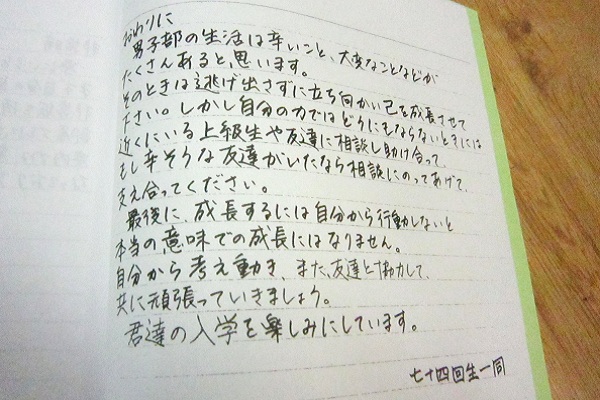 おわりに
男子部の生活は辛いこと、大変なことなどが
たくさんあると思います。
そのときは逃げ出さずに立ち向かい己を成長させて
下さい。しかし自分の力ではどうにもならないときには
近くにいる上級生や友達に相談し助け合って、
もし辛そうな友達がいたなら相談にのってあげて、
支え合ってください。
最後に、成長するには自分から行動しないと
本当の意味での成長にはなりません。
自分から考え動き、また、友達と協力して、
共に頑張っていきましょう。
君達の入学を楽しみにしています。
七十四回生一同